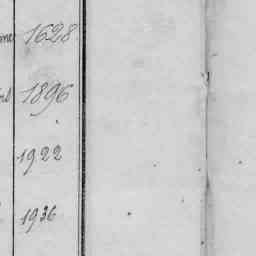 1628
1896
1922
1936